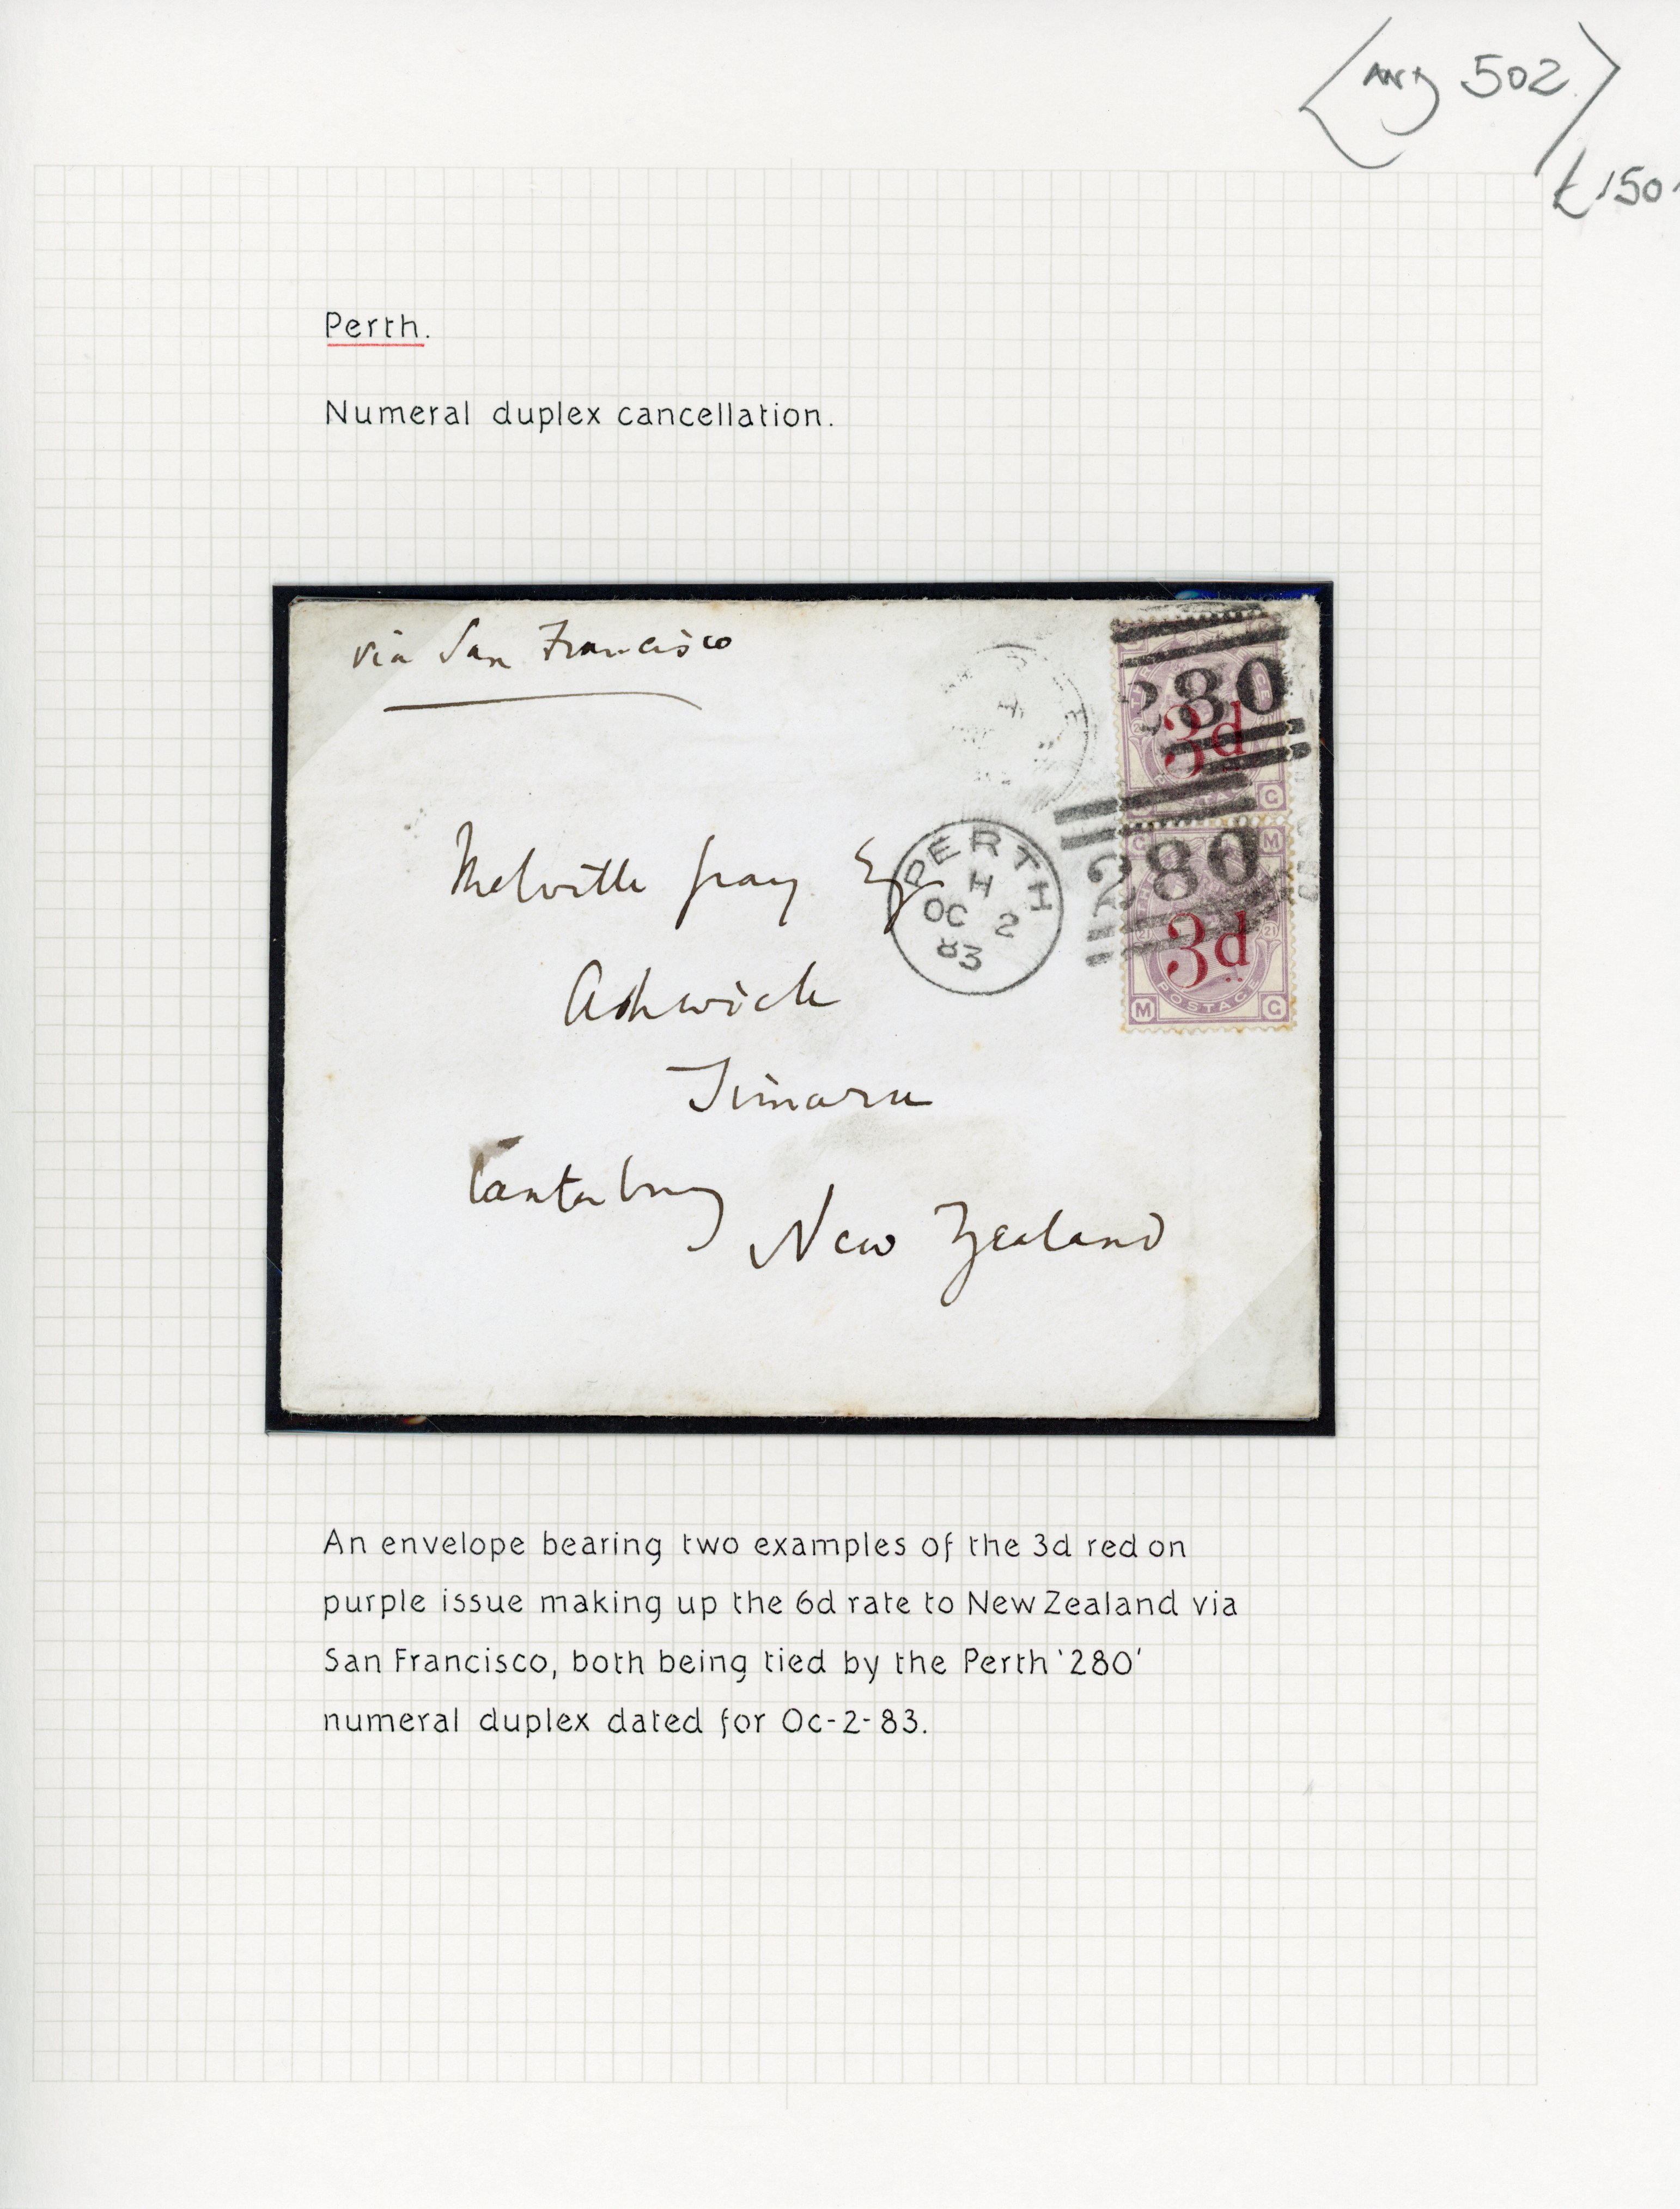 502
£150
Perth.
Numeral duplex cancellation.
via San Francisco
280
3d
G
PERTH
H
OC 2
83
G M
280
3d
21 21
POSTAGE
M G
Melville Gray Esq
Ashwick
Timaru
Canterbury
New Zealand
An envelope bearing two examples of the 3d red on
purple issue making up the 6d rate to New Zealand via
San Francisco, both being tied by the Perth '280'
numeral duplex dated for Oc-2-83.